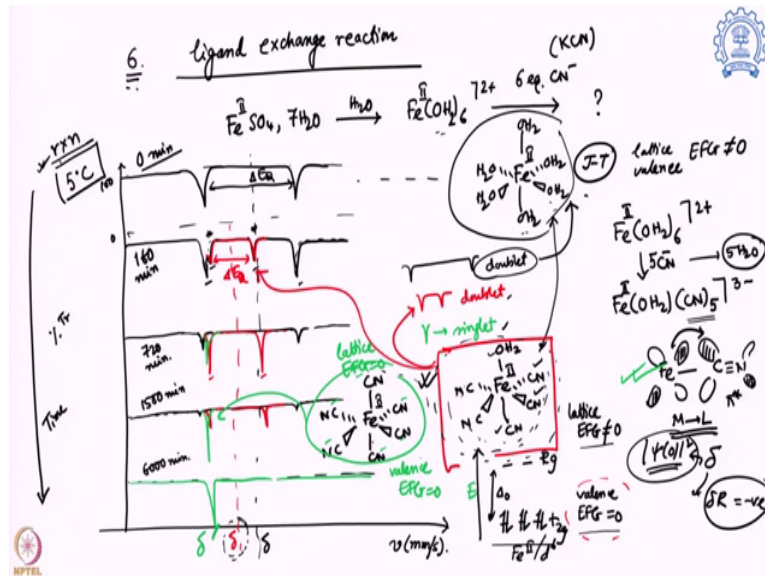 6. ligand exchange reaction
(KCN)
Fe^II SO4, 7H2O —H2O→ Fe^II(OH2)6]^2+ —6 eq. CN^-→ ?
rxn
5°C
0 min
100
0
ΔE_Q
160 min
ΔE_Q
720 min.
1500 min.
6000 min.
% Tr
Time
δ δ δ
v(mm/s).
OH2
H2O Fe^II OH2
H2O OH2
OH2
J-T
lattice EFG≠0
valence
doublet
doublet
γ → singlet
lattice EFG=0
CN
NC Fe^II CN
NC CN
CN
valence EFG=0
OH2
NC Fe^II CN
NC CN
CN
lattice EFG≠0
valence EFG=0
eg
E
Δ0
t2g
Fe^II/d^6
Fe^II(OH2)6]^2+
↓5CN^- → 5H2O
Fe^II(OH2)(CN)5]^3-
Fe C≡N
π*
M→L
|Ψ(0)|^2 δ
δR = -ve
NPTEL